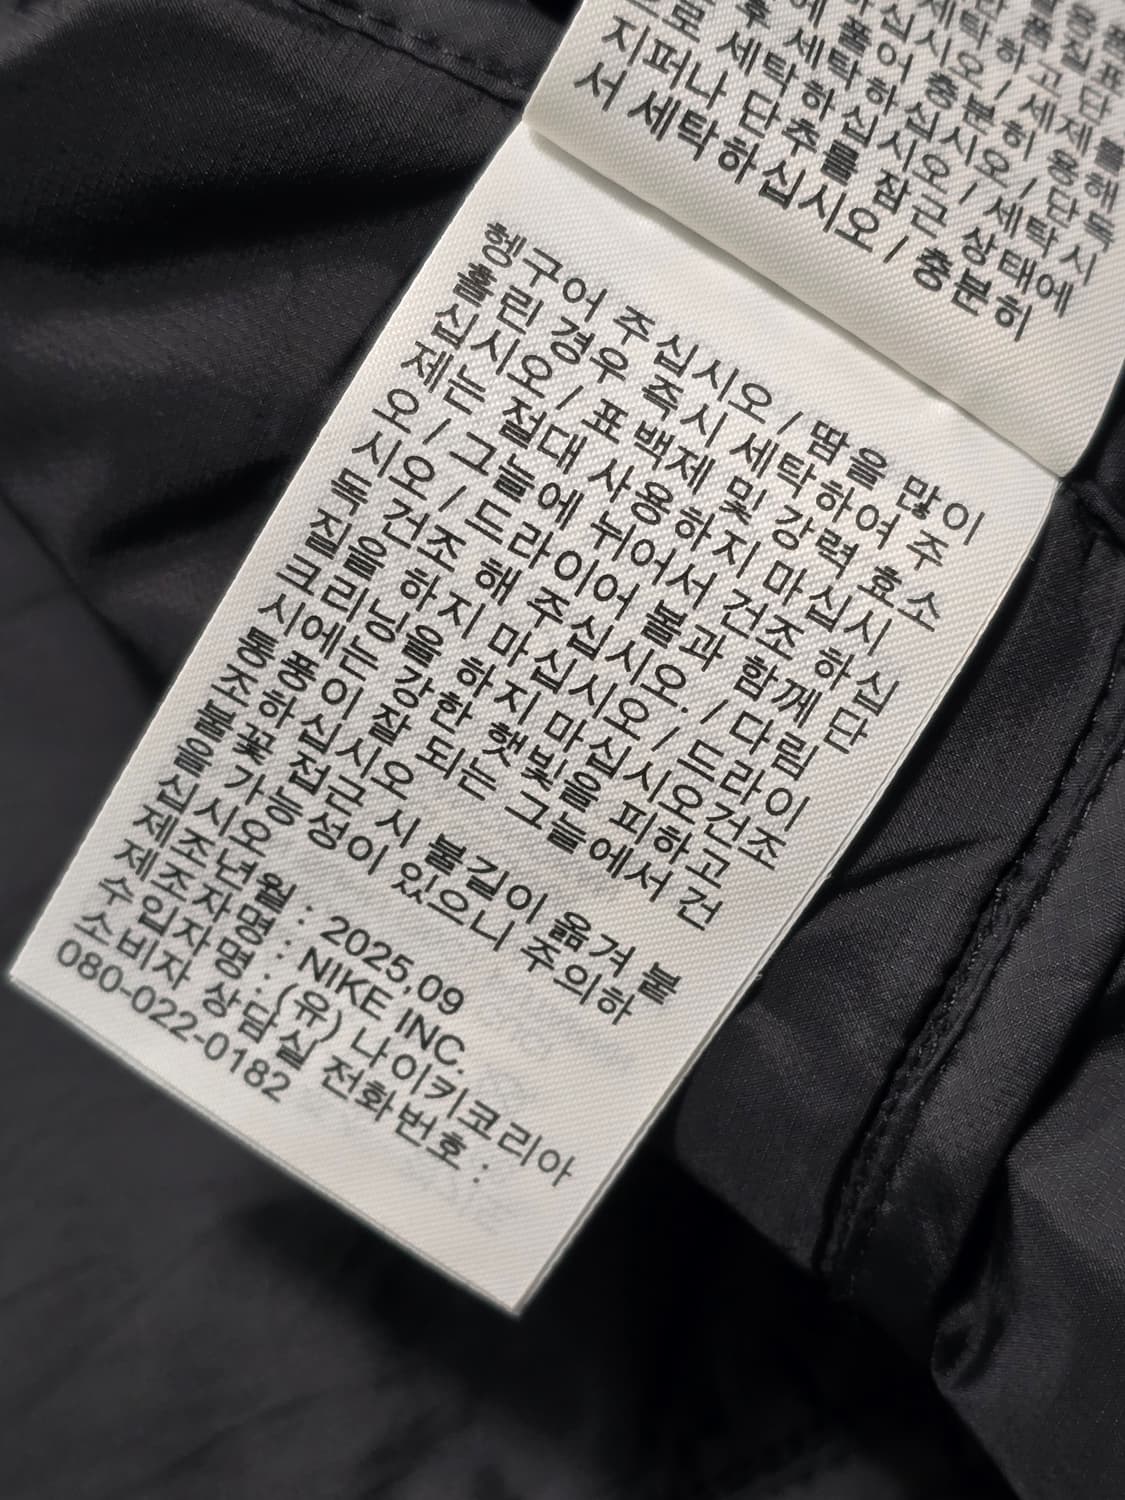 지퍼나 단추를 잠근 상태에
서 세탁하십시오 / 충분히
헹구어 주십시오 / 땀을 많이
흘린 경우 즉시 세탁하여 주
십시오 / 표백제 및 강력 효소
제는 절대 사용하지 마십시
오 / 그늘에 뉘어서 건조 하십
시오 / 드라이어 볼과 함께 단
독 건조 해 주십시오. / 다림
질을 하지 마십시오 / 드라이
크리닝을 하지 마십시오건조
시에는 강한 햇빛을 피하고
통풍이 잘 되는 그늘에서 건
조하십시오
불꽃 접근 시 불길이 옮겨 붙
을 가능성이 있으니 주의하
십시오
제조년월 : 2025,09
제조자명 : NIKE INC.
수입자명 : (유) 나이키코리아
소비자 상담실 전화번호 :
080-022-0182